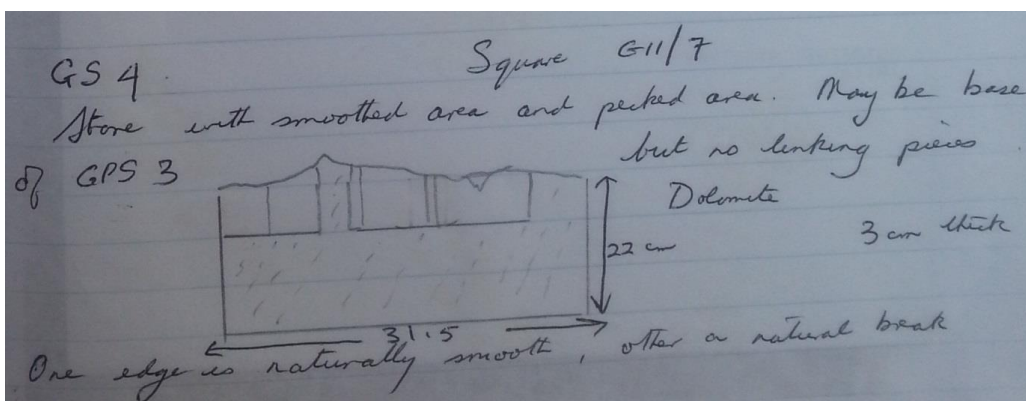 GS 4 Square G11/7
Stone with smoothed area and pecked area. May be base
of GPS 3 but no linking pieces
Dolomite
22 cm 3 cm thick
31.5
One edge is naturally smooth, other a natural break